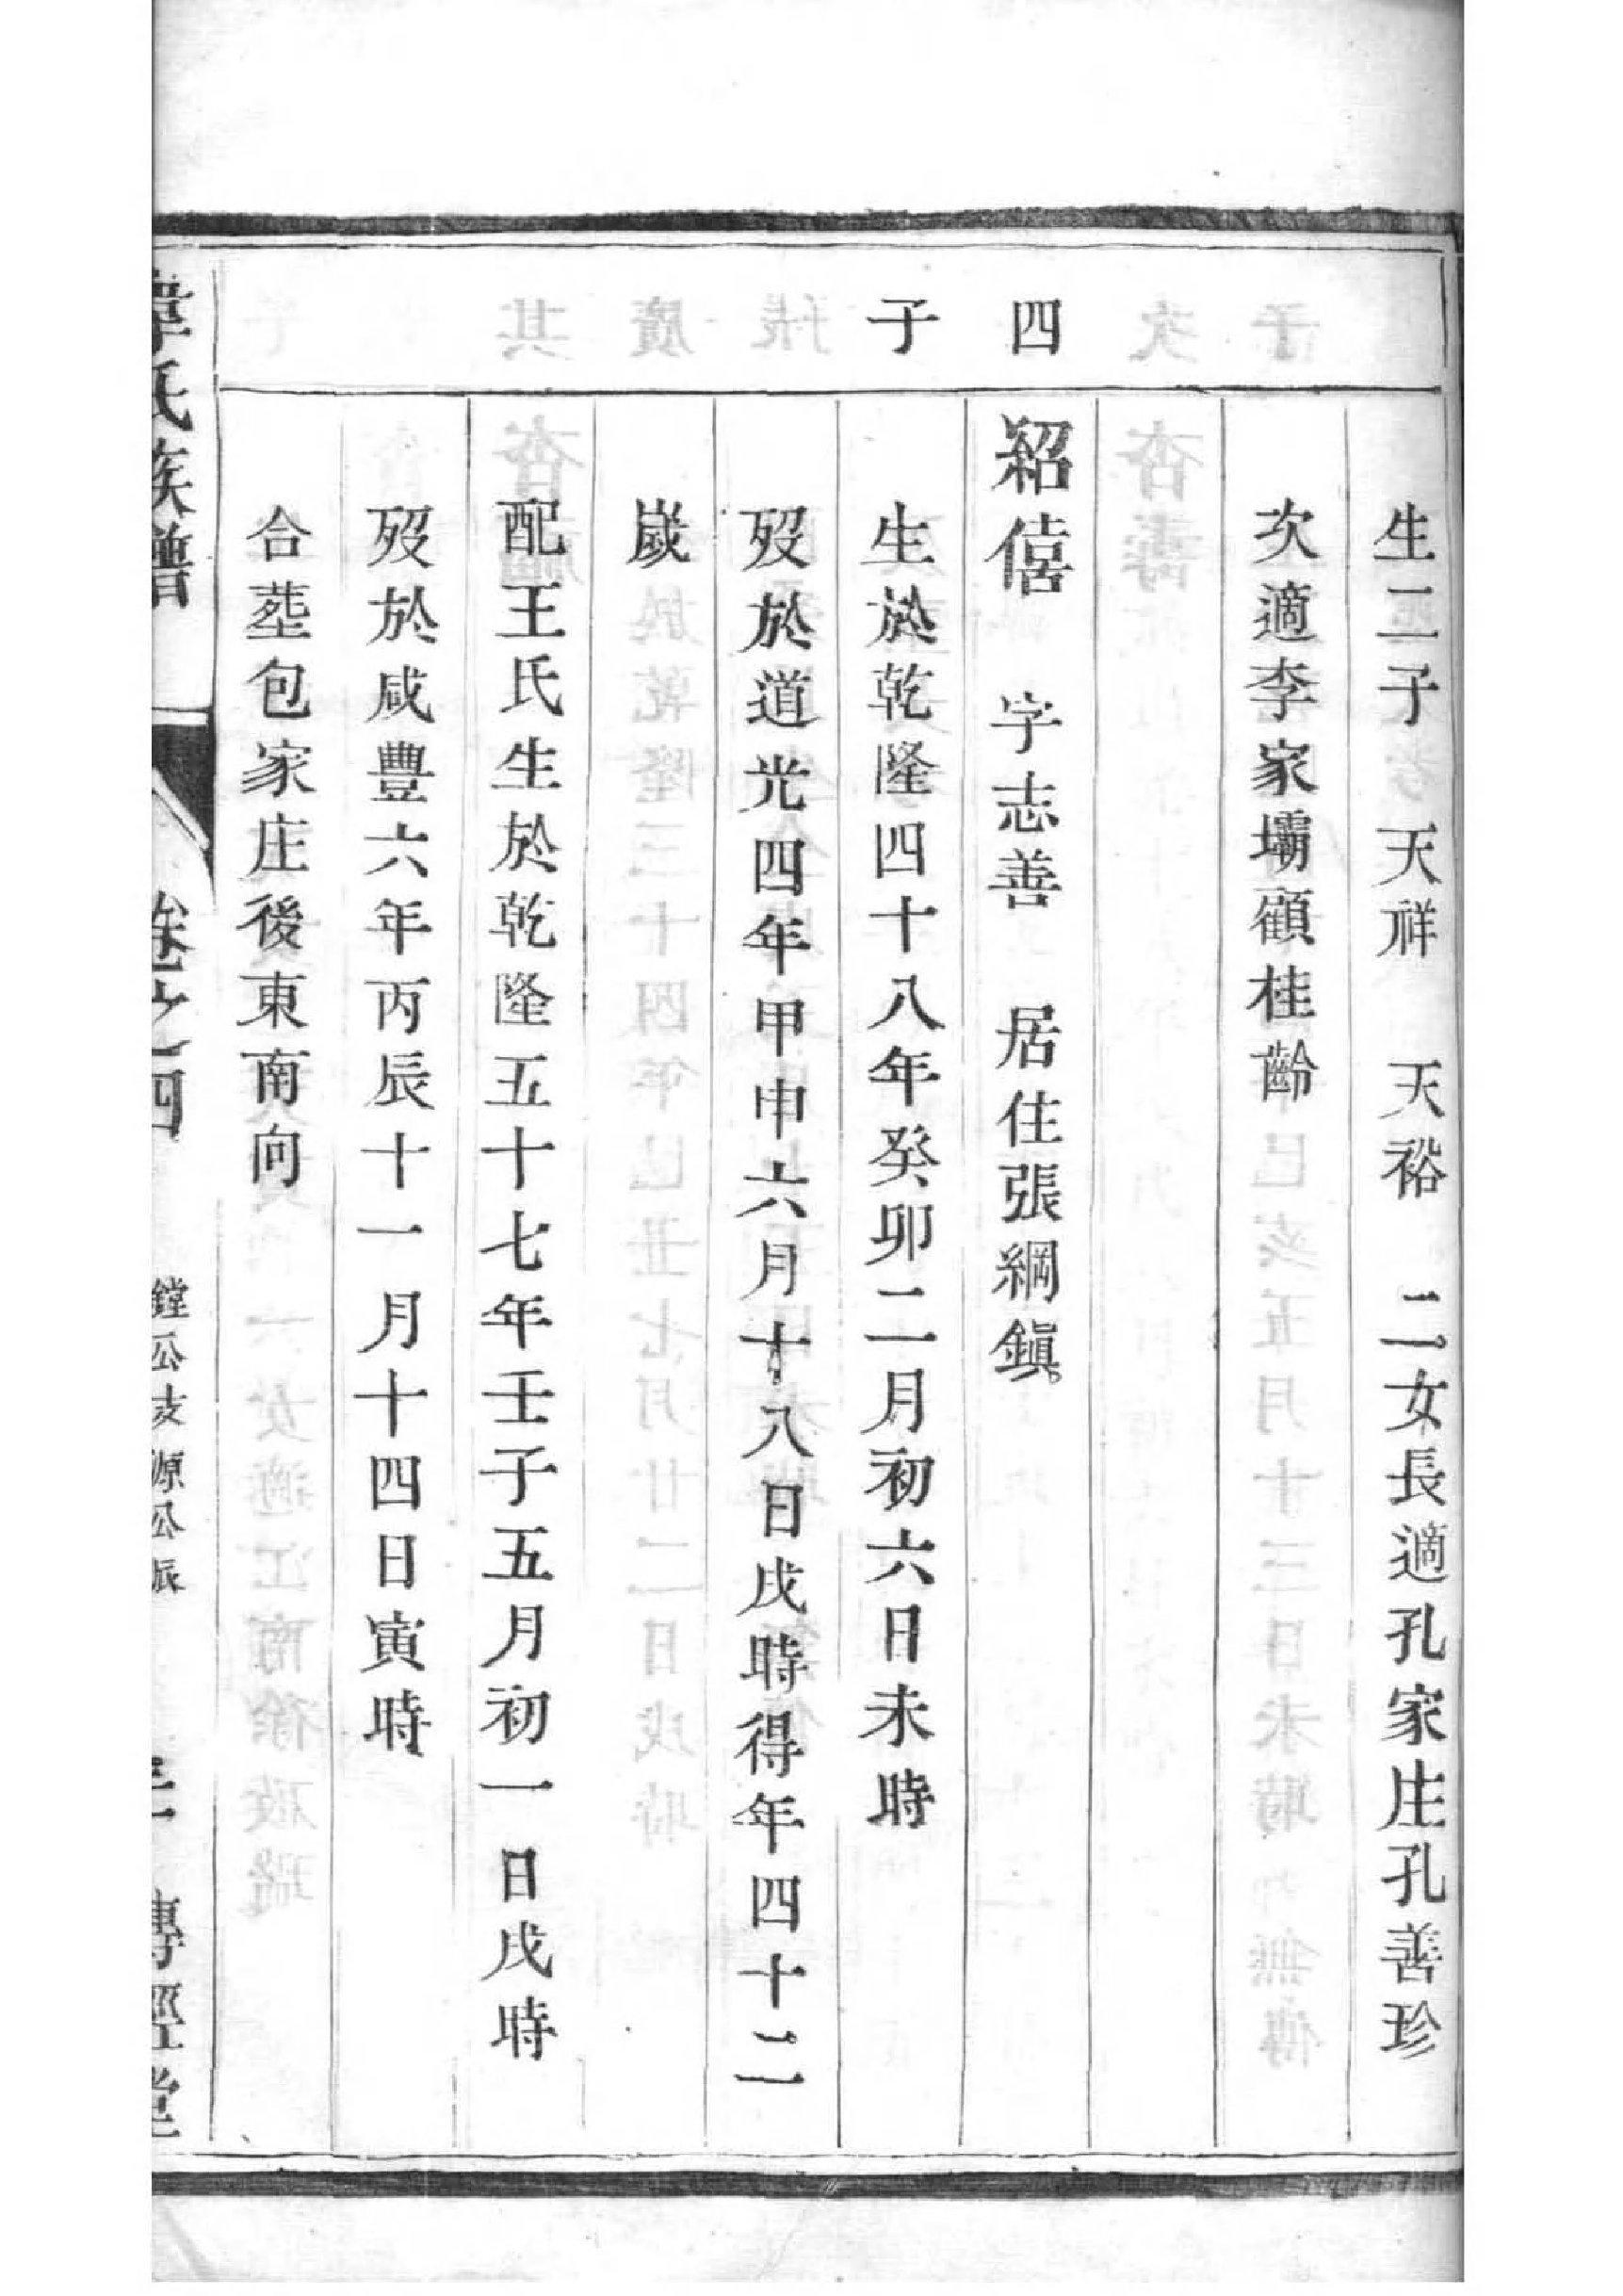 生二子　天祥　天裕　二女長適孔家庄孔善珍
次適李家壩顧桂齡
四子
紹僖　字志善　居住張綱鎭
生於乾隆四十八年癸卯二月初六日未時
歿於道光四年甲申六月十八日戌時得年四十二
歲
配王氏生於乾隆五十七年壬子五月初一日戌時
歿於咸豐六年丙辰十一月十四日寅時
合塟包家庄後東南向
韋氏族譜　卷之四　鏜公支源公派　傳經堂